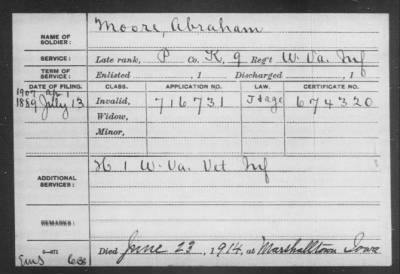 NAME OF SOLDIER: Moore, Abraham
SERVICE: Late rank, P Co. K, 9 Reg't W. Va. Inf
TERM OF SERVICE: Enlisted , 1 Discharged , 1
DATE OF FILING. CLASS. APPLICATION NO. LAW. CERTIFICATE NO.
1907
1889 July 13 Invalid, 716731 J & age 674320
Widow,
Minor,
ADDITIONAL SERVICES: H 1 W. Va. Vet Inf
REMARKS:
Died June 23, 1914, at Marshalltown Iowa